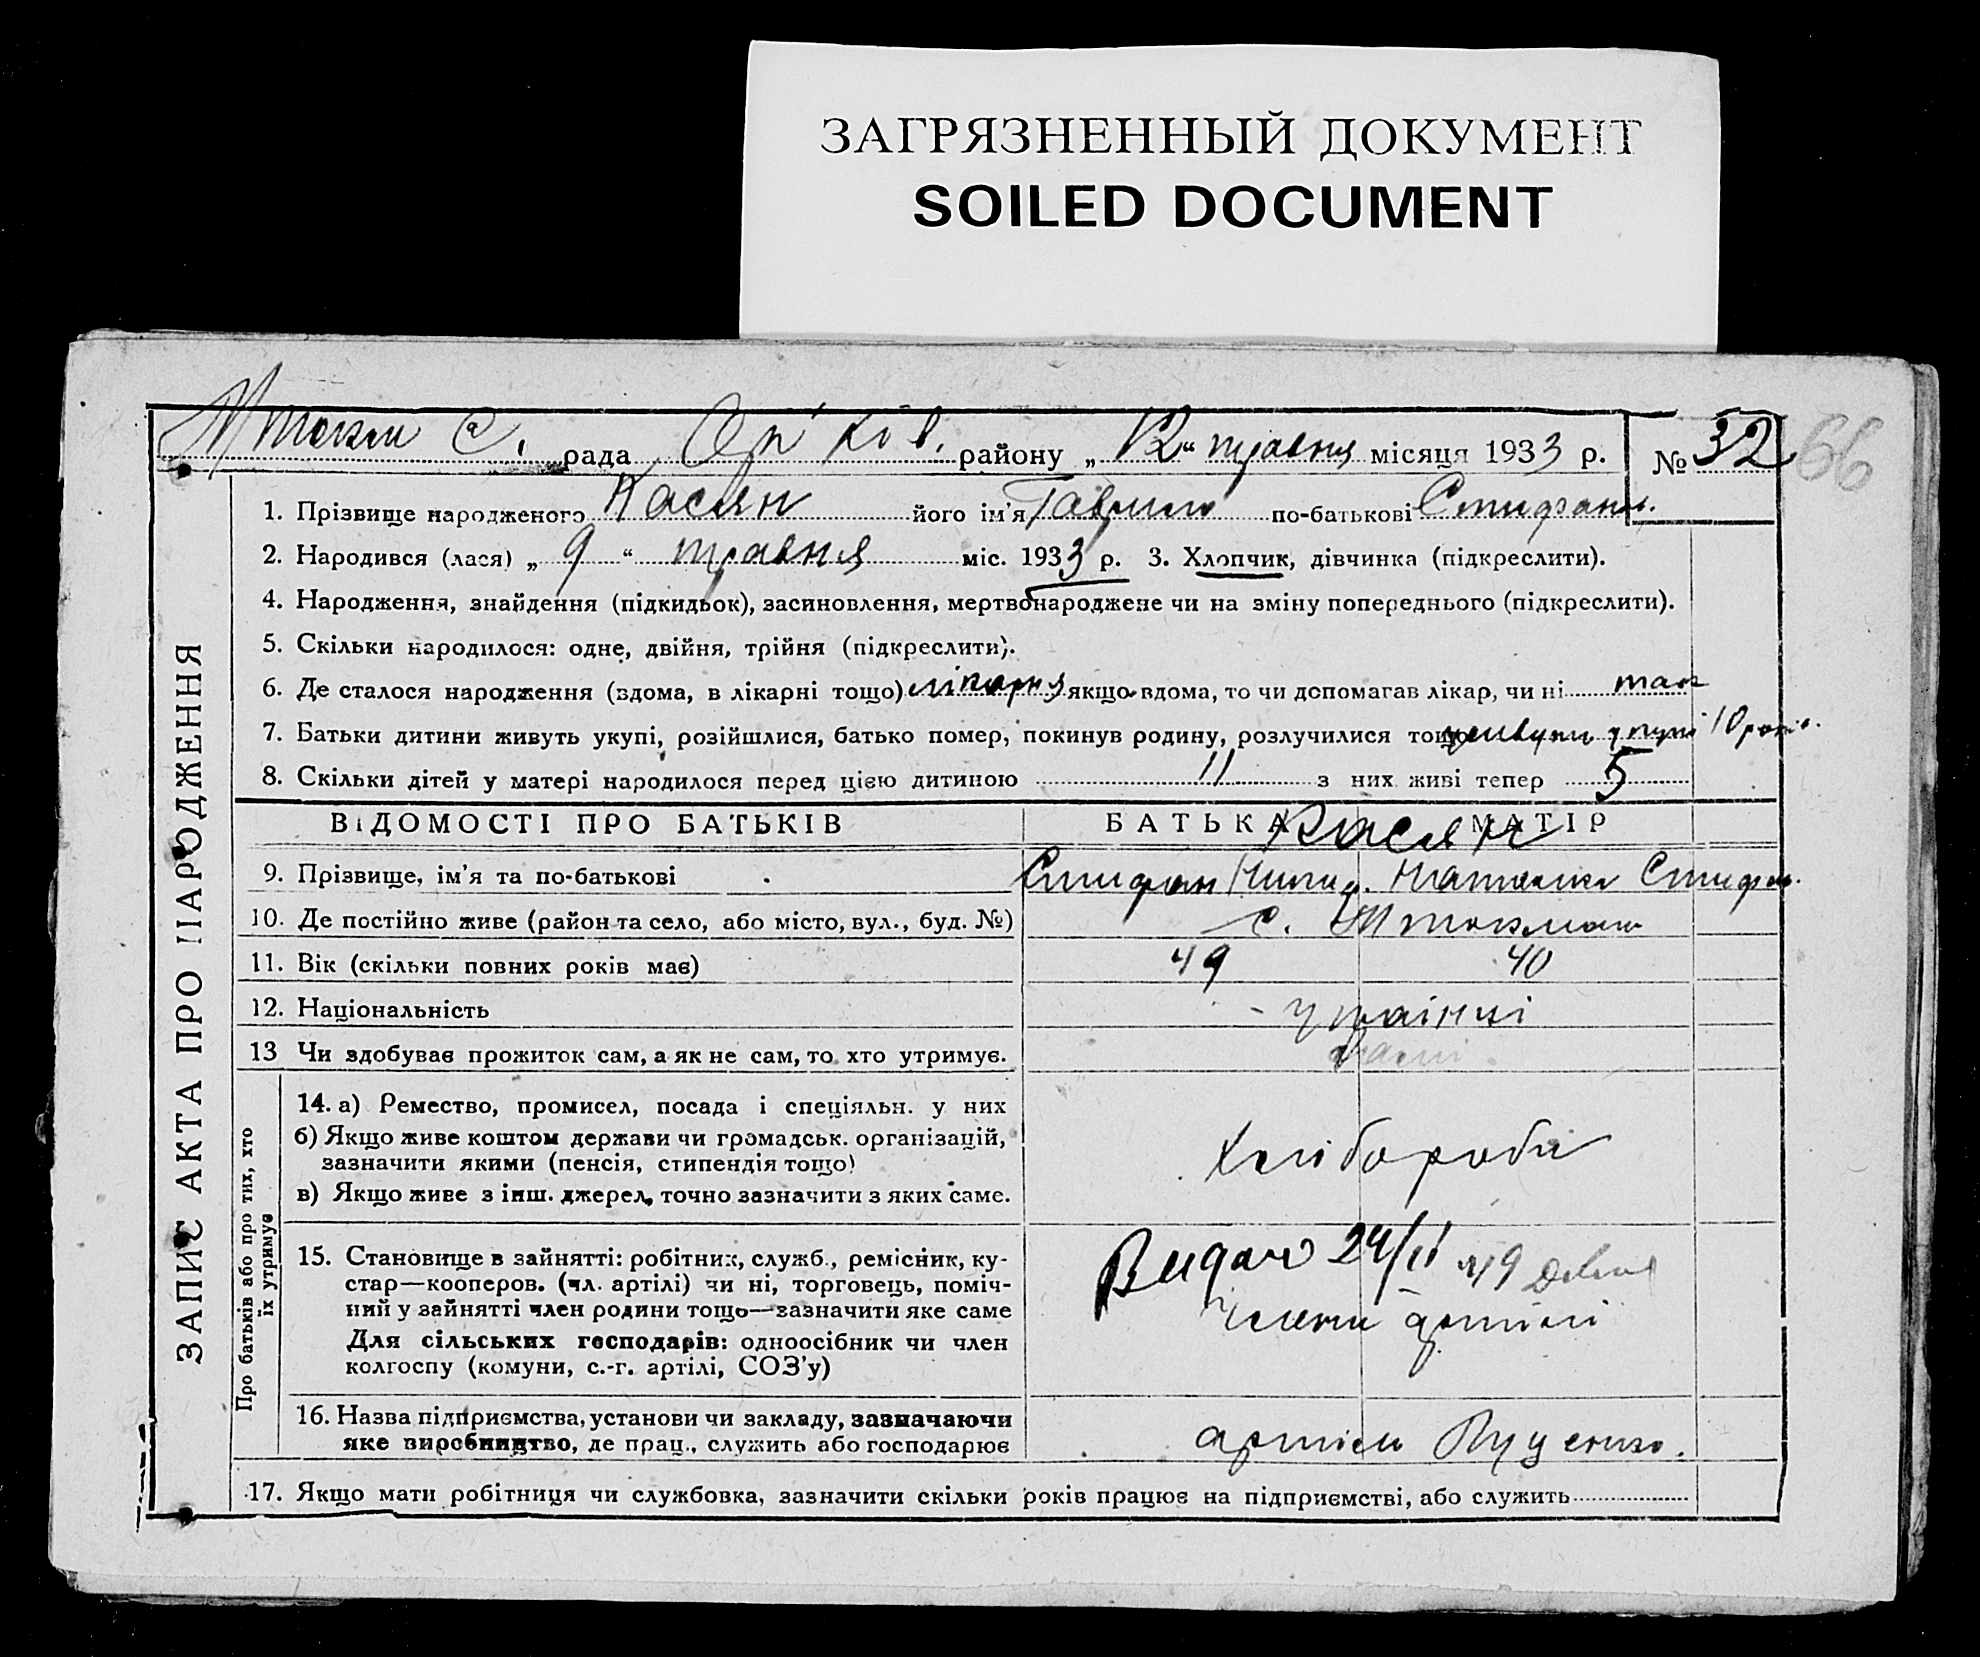 ЗАГРЯЗНЕННЫЙ ДОКУМЕНТ
SOILED DOCUMENT
с. рада Оріхів. району „12“ травня місяця 1933 р. № 32 66
1. Прізвище народженого Касян його ім'я Гаврило по-батькові
2. Народився (лася) „9“ травня міс. 1933 р. 3. Хлопчик, дівчинка (підкреслити).
4. Народження, знайдення (підкидьок), засиновлення, мертвонароджене чи на зміну попереднього (підкреслити).
5. Скільки народилося: одне, двійня, трійня (підкреслити).
6. Де сталося народження (вдома, в лікарні тощо) лікарня якщо вдома, то чи допомагав лікар, чи ні так
7. Батьки дитини живуть укупі, розійшлися, батько помер, покинув родину, розлучилися тощо живуть укупі 10 років.
8. Скільки дітей у матері народилося перед цією дитиною 11 з них живі тепер 5
ВІДОМОСТІ ПРО БАТЬКІВ БАТЬКА МАТІР
Касян
9. Прізвище, ім'я та по-батькові
10. Де постійно живе (район та село, або місто, вул., буд. №) с.
11. Вік (скільки повних років має) 49 40
12. Національність українці
13 Чи здобував прожиток сам, а як не сам, то хто утримує. самі
14. а) Ремество, промисел, посада і спеціяльн. у них
б) Якщо живе коштом держави чи громадськ. організацій,
зазначити якими (пенсія, стипендія тощо)
в) Якщо живе з інш. джерел, точно зазначити з яких саме.
Хлібороби
15. Становище в зайнятті: робітник, служб., ремісник, ку-
стар—кооперов. (чл. артілі) чи ні, торговець, поміч-
ний у зайнятті член родини тощо—зазначити яке саме
Для сільських господарів: одноосібник чи член
колгоспу (комуни, с.-г. артілі, СОЗ'у)
Видано 24/II 49
Члени артілі
16. Назва підприємства, установи чи закладу, зазначаючи
яке виробництво, де прац., служить або господарює
артіль
17. Якщо мати робітниця чи службовка, зазначити скільки років працює на підприємстві, або служить
ЗАПИС АКТА ПРО НАРОДЖЕННЯ
Про батьків або про тих, хто
їх утримує